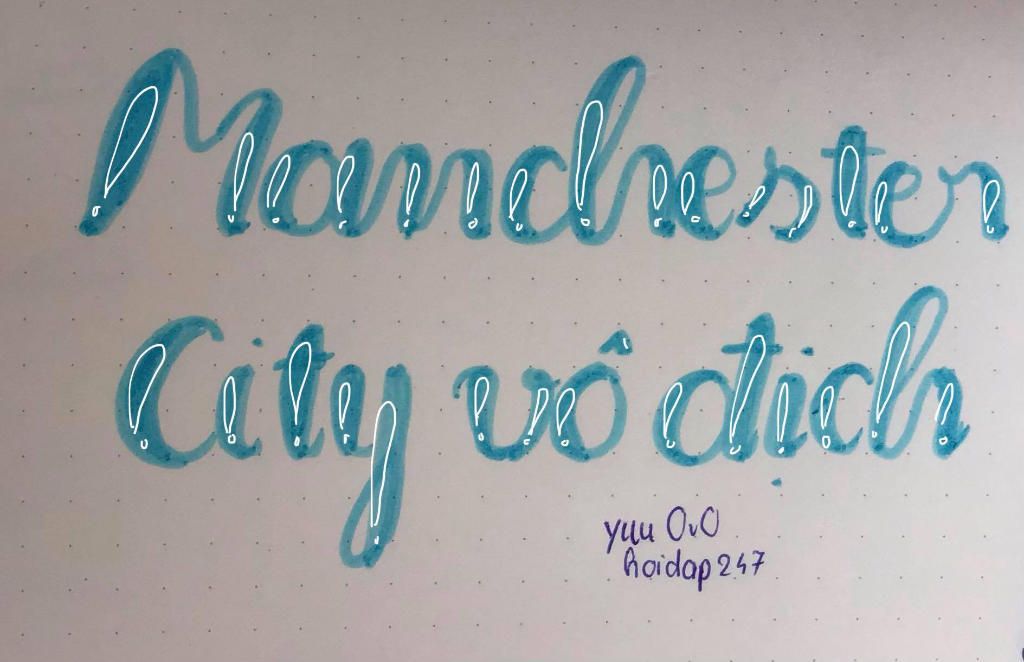 Manchester
City vô địch
yuu OvO
hoidap247